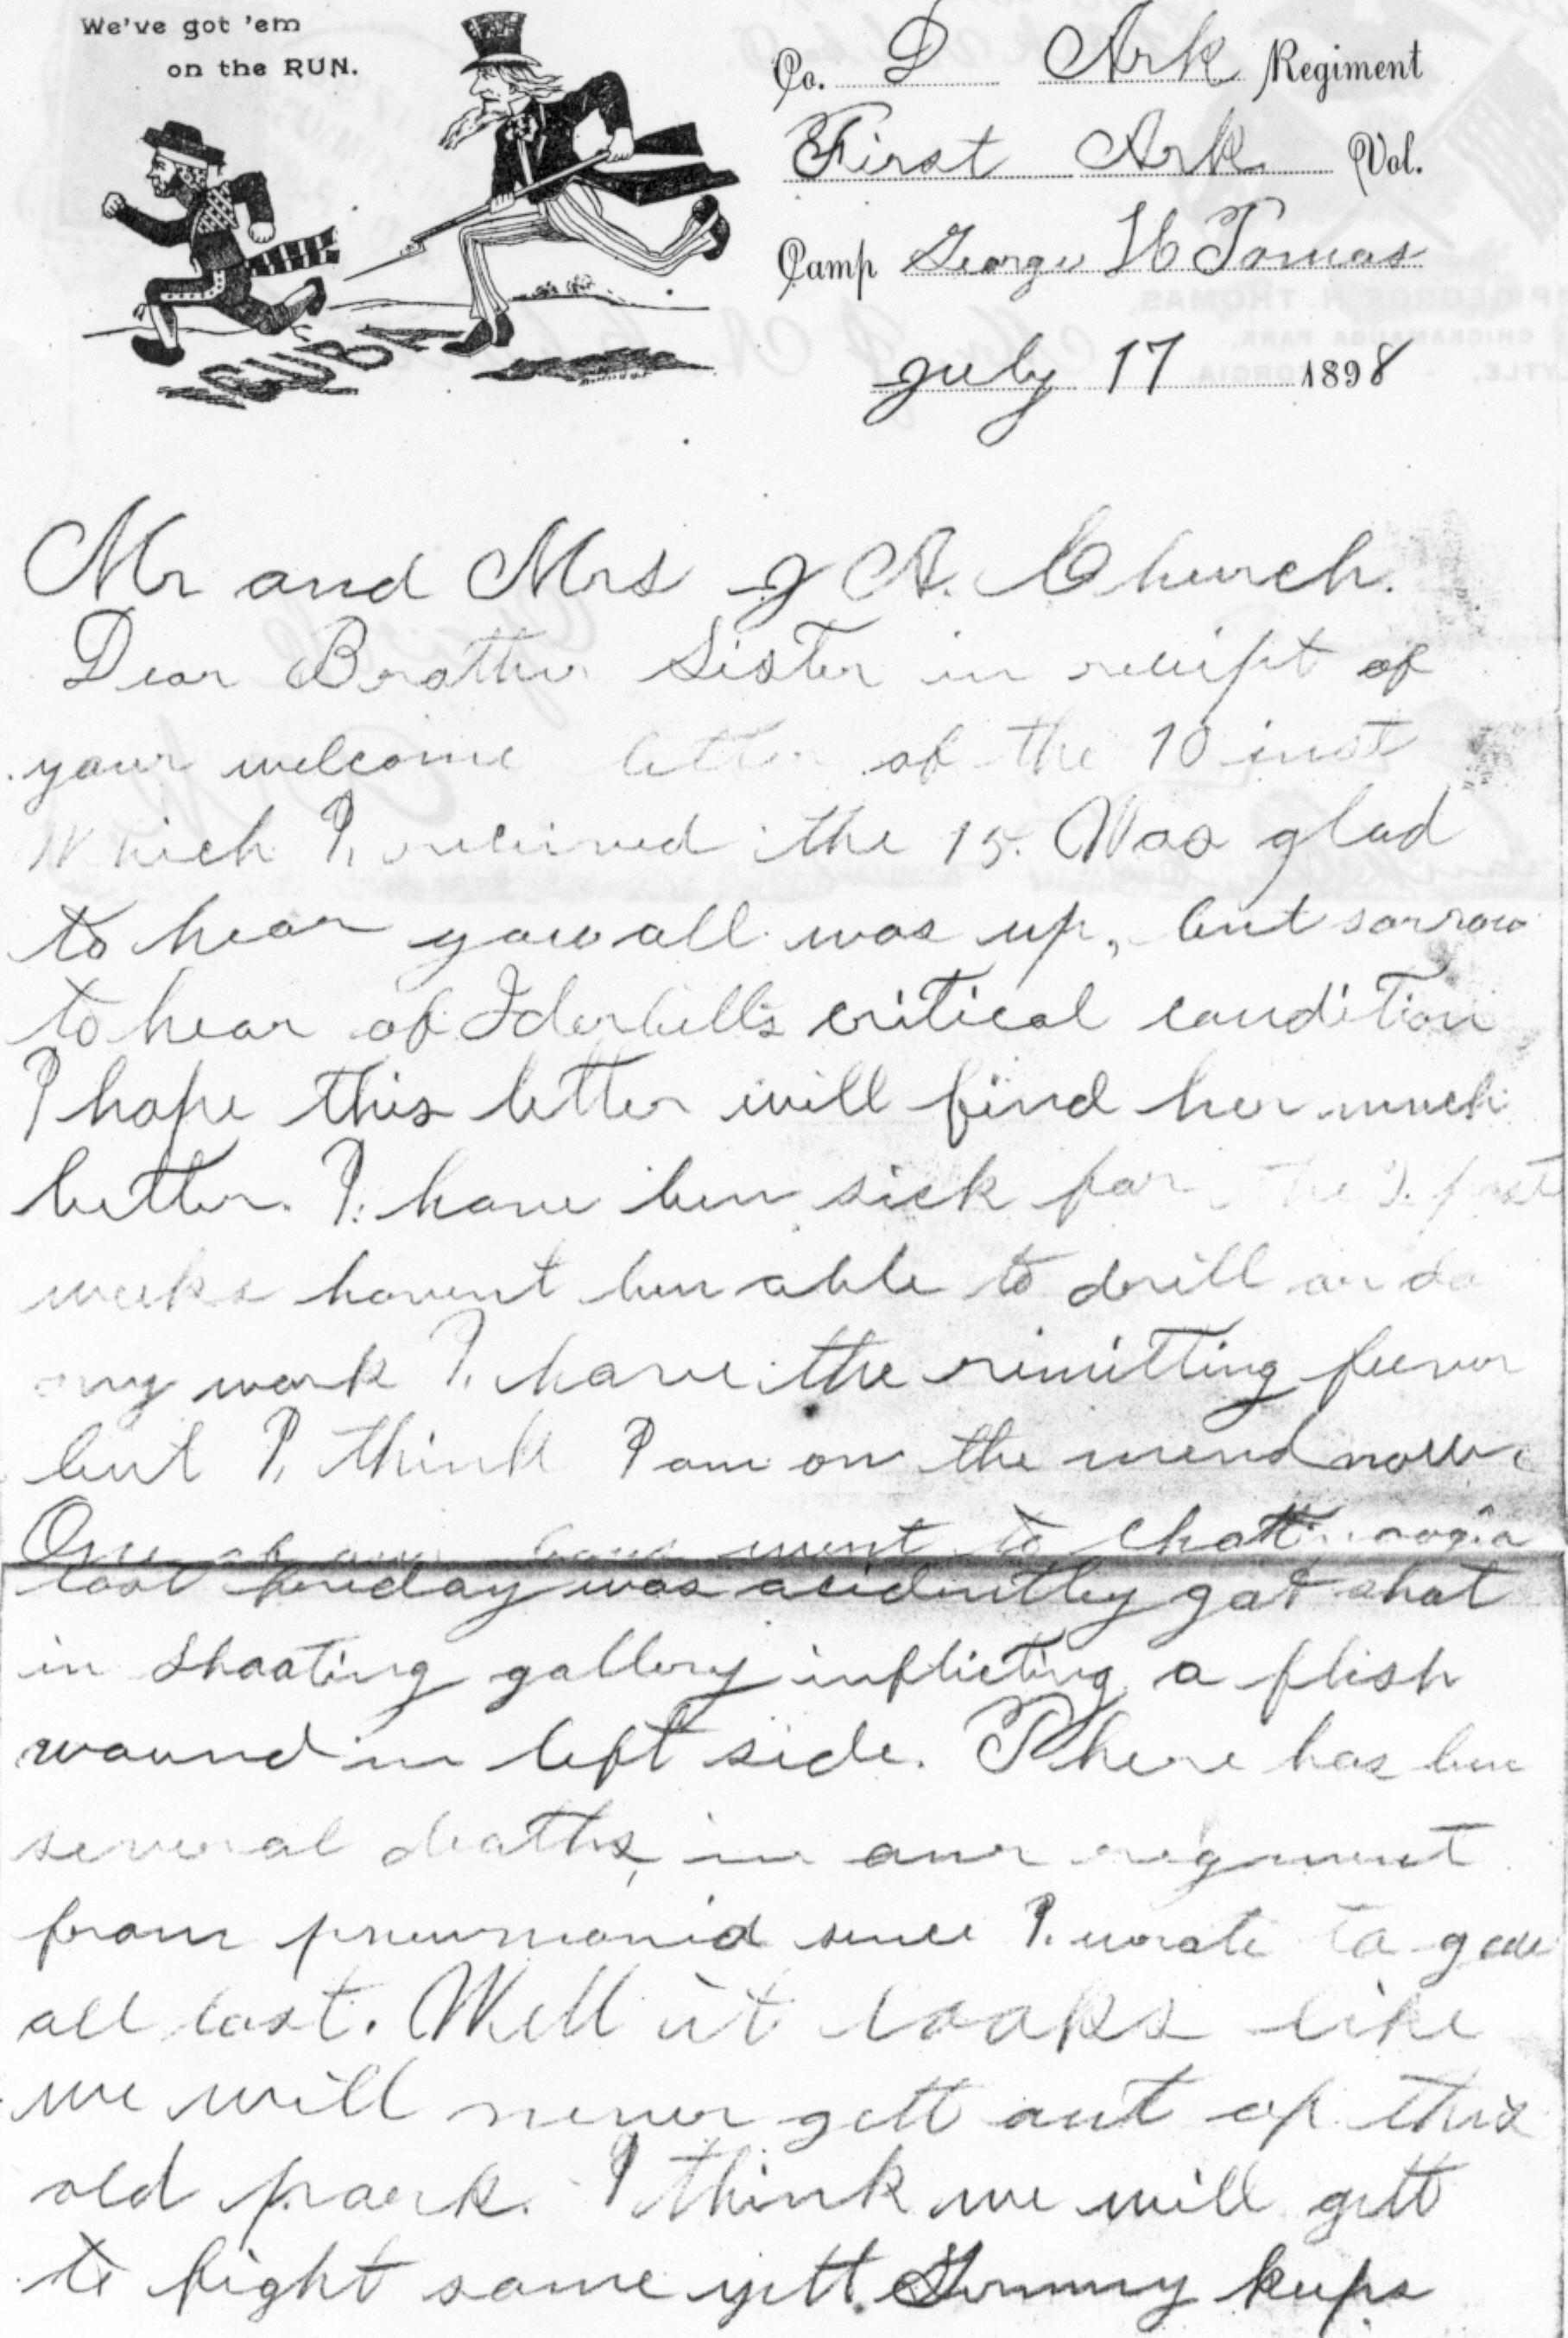 We've got 'em
on the RUN.
CUBA
Co. D Ark Regiment
First Ark. Vol.
Camp George H Tomas
July 17 1898
Mr and Mrs J A. Church.
Dear Brother Sister in receipt of
your welcome letter of the 10 inst
Which I, received the 15. Was glad
to hear you all was up, but sorrow
to hear of Iderbells critical condition
I hope this letter will find her much
better. I. have ben sick for the past
weeks havent ben able to drill or do
my work I. have the remitting feever
but I, think I am on the mend now.
One of our boys went to
last friday was acidently got shot
in shooting gallery inflicting a flish
wound in left side. There has ben
several deaths, in our regment
from pneumonia sence I. wrote to you
all last. Well it looks like
we will never gett out of this
old park. I think we will gett
to fight some yett. keeps